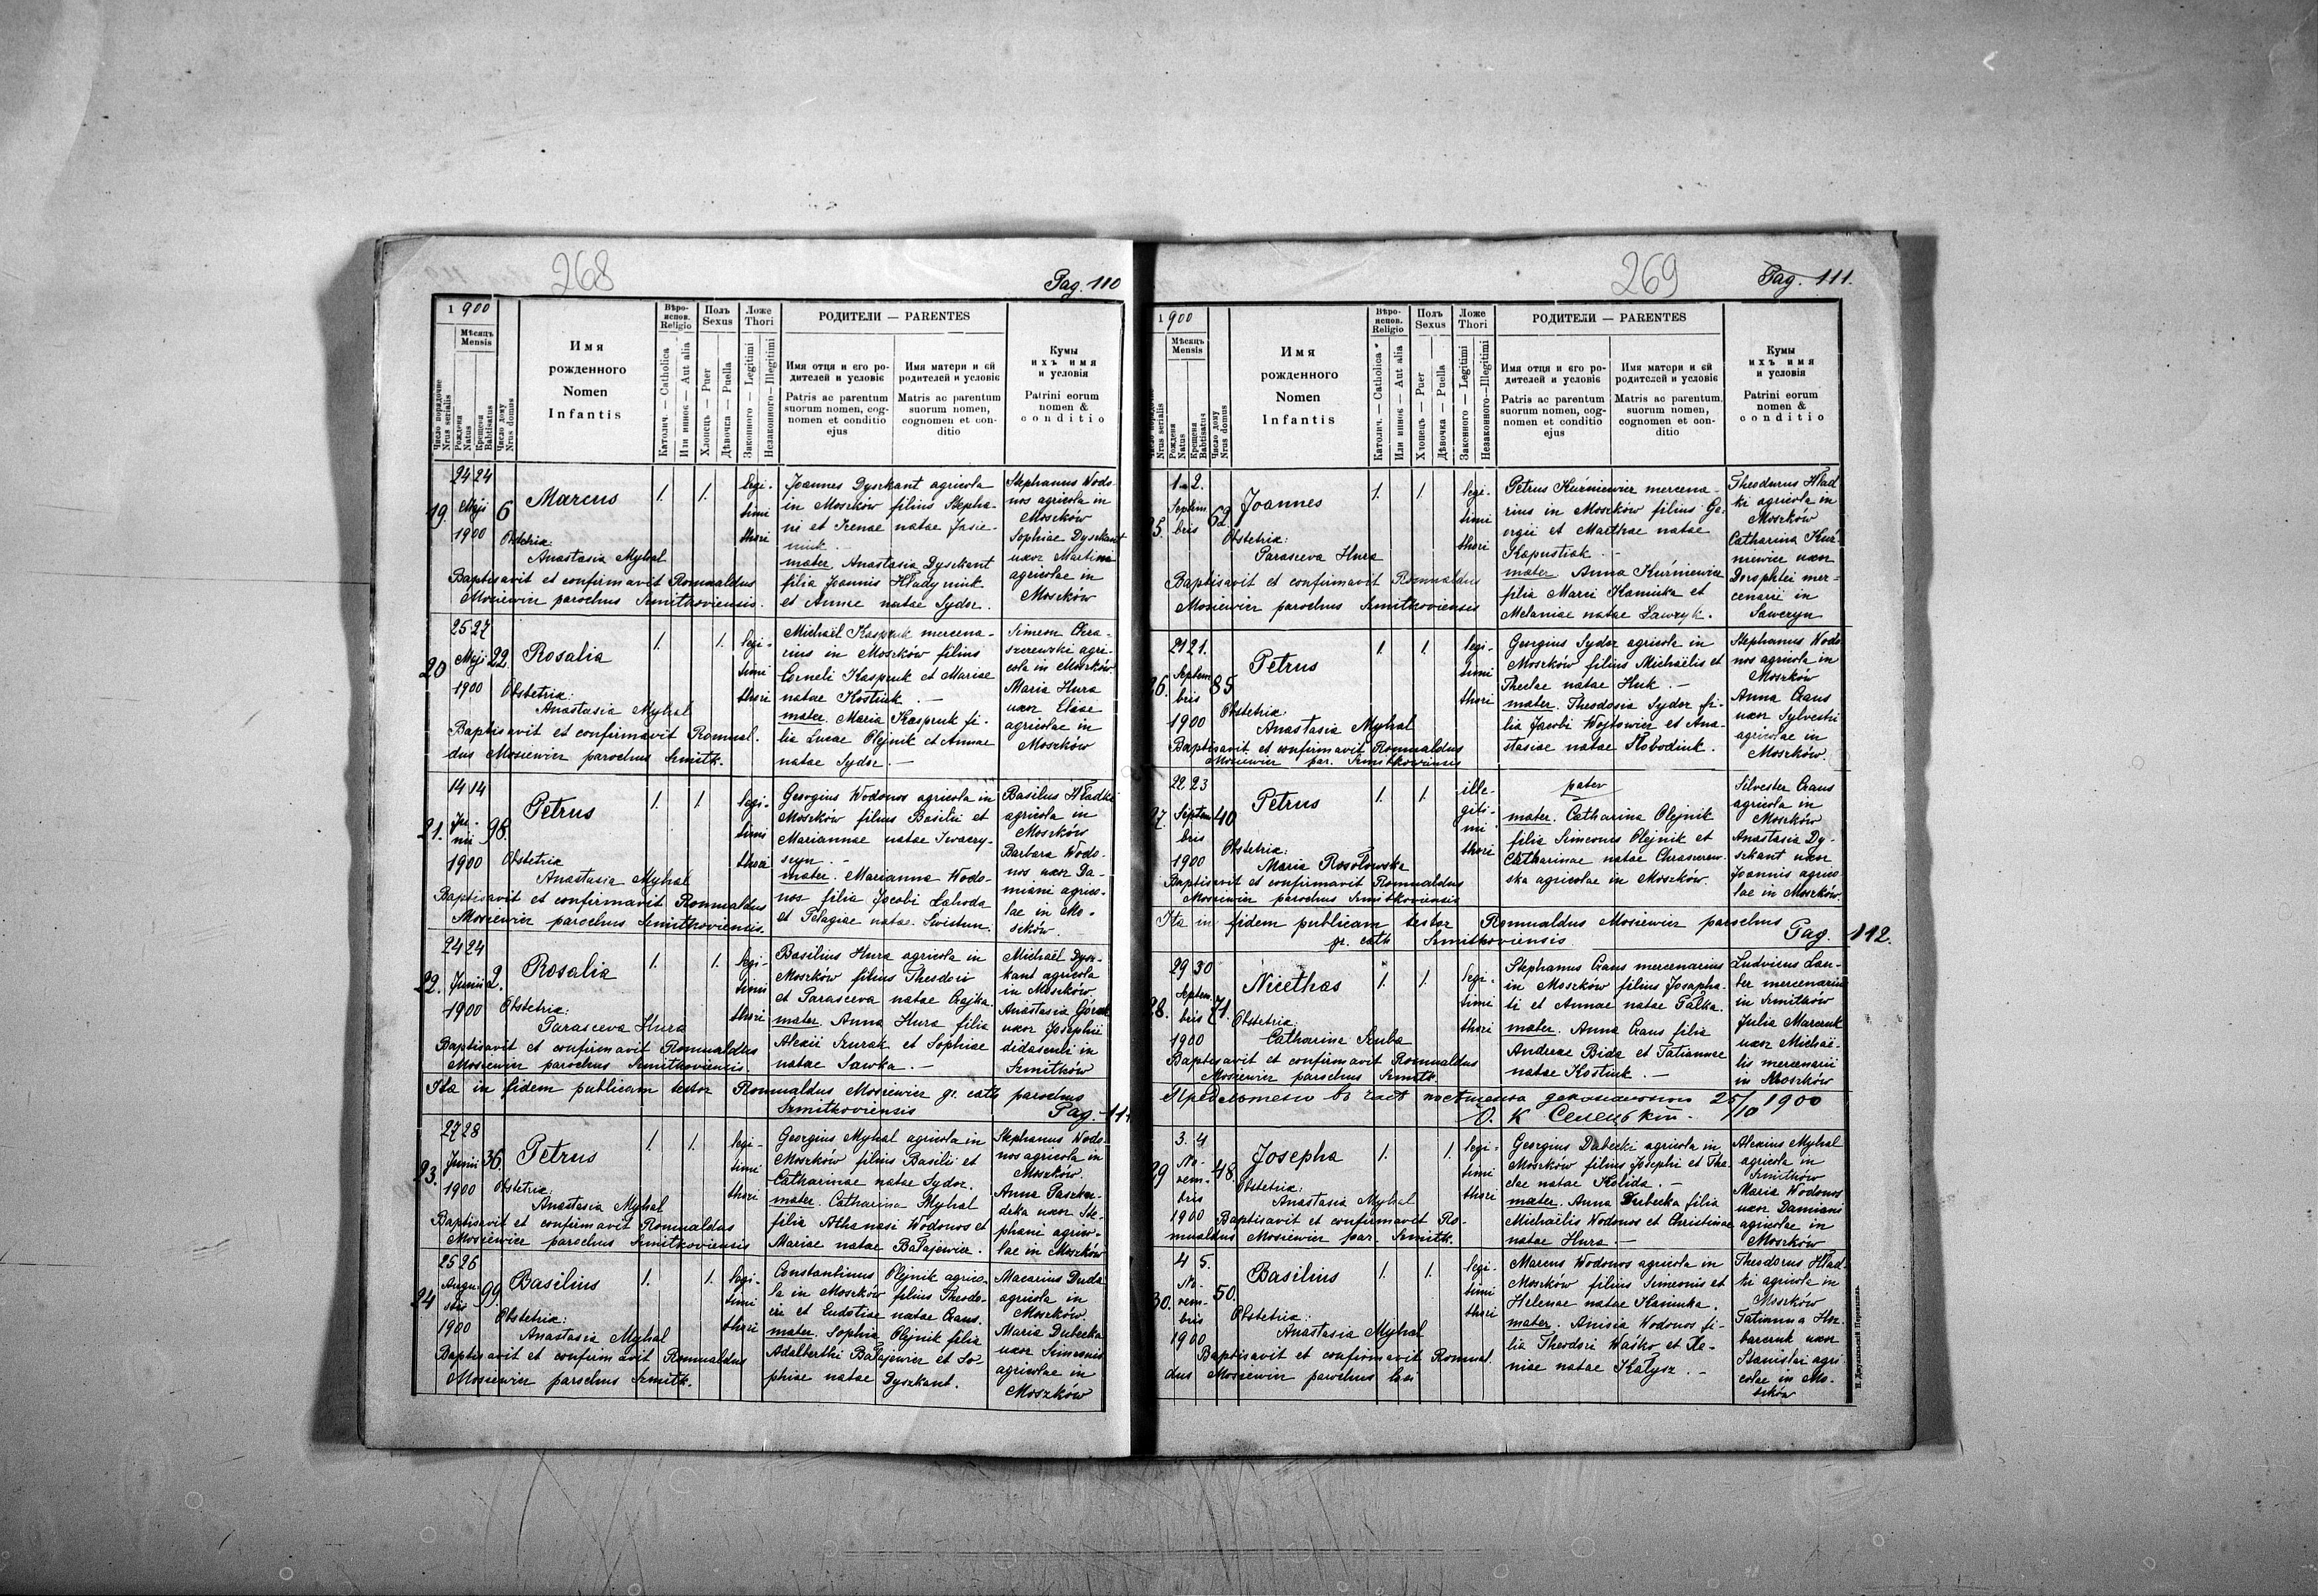 268
Pag. 110
1 900
Мѣсяць
Mensis
Число порядочне
Nrus serialis
Рождена
Natus
Крещена
Babtisatus
Число дому
Nrus domus
Имя
рожденного
Nomen
Infantis
Вѣро-
испов.
Religio
Католич. — Catholica
Или иное — Aut alia
Полъ
Sexus
Хлопець — Puer
Дѣвочка — Puella
Ложе
Thori
Законного — Legitimi
Незаконного — Illegitimi
РОДИТЕЛИ — PARENTES
Имя отця и єго ро-
дителей и условіє
Patris ac parentum
suorum nomen, cog-
nomen et conditio
ejus
Имя матери и єй
родителей и условіє
Matris ac parentum
suorum nomen,
cognomen et con-
ditio
Кумы
ихъ имя
и условія
Patrini eorum
nomen &
conditio
19.
24 24
Maji
1900
6
Marcus
1.
1.
legi-
timi
thori
Obstetrix:
Anastasia Myhal
Baptisavit et confirmavit Romualdus
Mosiewicz parochus Szmitkoviensis.
Joannes Dyszkant agricola
in Moszków filius Stepha-
ni et Irenae natae Jasie-
niuk. —
mater. Anastasia Dyszkant
filia Joannis Hładyniuk
et Annae natae Sydor.
Stephanus Wodo-
nos agricola in
Moszków
Sophiae Dyszkant
uxor Martini
agricolae in
Moszków
20
25 27
Maji
1900
22
Rosalia
1.
1.
legi-
timi
thori
Obstetrix:
Anastasia Myhal
Baptisavit et confirmavit Romual-
dus Mosiewicz parochus Szmitk.
Michaël Kaspruk mercena-
rius in Moszków filius
Corneli Kaspruk et Mariae
natae Kostiuk. —
mater. Maria Kaspruk fi-
lia Lucae Olejnik et Annae
natae Sydor. —
Simeon Chra-
szczewski agri-
cola in Moszków
Maria Hura
uxor Eliae
agricolae in
Moszków
21.
14 14
Ju-
nii
1900
98.
Petrus
1.
1.
legi-
timi
thori
Obstetrix
Anastasia Myhal
Baptisavit et confirmavit Romualdus
Mosiewicz parochus Szmitkoviensis.
Georgius Wodonos agricola in
Moszków filius Basilii et
Mariannae natae Iwaczy-
szyn. —
mater. Marianna Wodo-
nos filia Jacobi Lahoda
et Pelagiae natae Swistun.
Basilius Hładki
agricola in
Moszków
Barbara Wodo-
nos uxor Da-
miani agrico-
lae in Mo-
szków.
22.
24 24
Junii
1900
2.
Rosalia
1.
1.
legi-
timi
thori
Obstetrix:
Parasceva Hura
Baptisavit et confirmavit Romualdus
Mosiewicz parochus Szmitkoviensis.
Basilius Hura agricola in
Moszków filius Theodori
et Parasceva natae Czajka.
mater. Anna Hura filia
Alexii Szurak et Sophiae
natae Sawka. —
Michaël Dysz-
kant agricola
in Moszków
Anastasia Góral
uxor Josephi
didasculi in
Szmitków
Ita in fidem publicam testor Romualdus Mosiewicz gr. cath parochus
Szmitkoviensis
Pag. 111
23.
27 28
Junii
1900
36.
Petrus
1.
1.
legi-
timi
thori
Obstetrix:
Anastasia Myhal
Baptisavit et confirmavit Romualdus
Mosiewicz parochus Szmitkoviensis
Georgius Myhal agricola in
Moszków filius Basilii et
Catharinae natae Sydor.
mater. Catharina Myhal
filia Athanasi Wodonos et
Mariae natae Bałajewicz.
Stephanus Wodo-
nos agricola in
Moszków.
Anna Paszkow-
ska uxor Ste-
phani agrico-
lae in Moszków
24
25 26
Augu-
sti
1900
99
Basilius
1.
1.
legi-
timi
thori
Obstetrix:
Anastasia Myhal
Baptisavit et confirmavit Romualdus
Mosiewicz parochus Szmitk.
Constantinus Olejnik agrico-
la in Moszków filius Theodo-
ri et Eudotiae natae Czaus.
mater. Sophia Olejnik filia
Adalberthi Bałajewicz et So-
phiae natae Dyszkant.
Macarius Duda
agricola in
Moszków.
Maria Dubecka
uxor Simeonis
agricolae in
Moszków
269
Pag. 111.
1 900
Мѣсяць
Mensis
Nrus serialis
Рождена
Natus
Крещена
Babtisatus
Число дому
Nrus domus
Имя
рожденного
Nomen
Infantis
Вѣро-
испов.
Religio
Католич. — Catholica
Или иное — Aut alia
Полъ
Sexus
Хлопець — Puer
Дѣвочка — Puella
Ложе
Thori
Законного — Legitimi
Незаконного — Illegitimi
РОДИТЕЛИ — PARENTES
Имя отця и єго ро-
дителей и условіє
Patris ac parentum
suorum nomen, cog-
nomen et conditio
ejus
Имя матери и єй
родителей и условіє
Matris ac parentum
suorum nomen,
cognomen et con-
ditio
Кумы
ихъ имя
и условія
Patrini eorum
nomen &
conditio
25.
1. 2.
Septem
bris
62.
Joannes
1.
1.
legi-
timi
thori
Obstetrix:
Parasceva Hura
Baptisavit et confirmavit Romualdus
Mosiewicz parochus Szmitkoviensis
Petrus Kuśniewicz mercena-
rius in Moszków filius Ge-
orgii et Marthae natae
Kapustiak. —
mater Anna Kuśniewicz
filia Marci Kaminka et
Melaniae natae Ławryk.
Theodurus Hład
ki agricola in
Moszków
Catharina Kuś-
niewicz uxor
Dorophtei mer-
cenarii in
Sawczyn
26.
21 21.
Septem
bris
1900
85
Petrus
1
1.
legi-
timi
thori
Obstetrix:
Anastasia Myhal
Baptisavit et confirmavit Romualdus
Mosiewicz par. Szmitkoviensis
Georgius Sydor agricola in
Moszków filius Michaëlis et
Theclae natae Huk. —
mater. Theodosia Sydor fi-
lia Jacobi Wojtowicz et Ana-
stasiae natae Słobodiuk.
Stephanus Wodo
nos agricola in
Moszków
Anna Czaus
uxor Sylvestri
agricolae in
Moszków.
27.
22 23
Septem
bris
1900
40
Petrus
1.
1.
ille-
giti-
mi
thori
Obstetrix:
Maria Rosołowska
Baptisavit et confirmavit Romualdus
Mosiewicz parochus Szmitkoviensis
pater
mater. Catharina Olejnik
filia Simeonis Olejnik et
Catharinae natae Chraszczew-
ska agricolae in Moszków.
Silvester Czaus
agricola in
Moszków
Anastasia Dy-
szkant uxor
Joannis agrico
lae in Moszków.
Ita in fidem publicam testor Romualdus Mosiewicz parochus
gr. cath Szmitkoviensis.
Pag. 112.
28.
29 30
Septem
bris
1900
71.
Nicethas
1.
1.
legi-
timi
thori
Obstetrix:
Catharina Szuba
Baptisavit et confirmavit Romualdus
Mosiewicz parochus Szmitk.
Stephanus Czaus mercenarius
in Moszków filius Josapha-
ti et Annae natae Pałka.
mater. Anna Czaus filia
Andreae Bida et Tatiannae
natae Kostiuk. —
Ludvicus Lau-
ter mercenarius
in Szmitków
Julia Marczuk
uxor Michaë-
lis mercenarii
in Moszków
25/10 1900
29
3. 4
No-
vem-
bris
1900
48.
Josepha
1.
1.
legi-
timi
thori
Obstetrix:
Anastasia Myhal
Baptisavit et confirmavit Ro-
mualdus Mosiewicz par. Szmitk.
Georgius Dubecki agricola in
Moszków filius Josephi et The-
clae natae Kolida. —
mater. Anna Dubecka filia
Michaëlis Wodonos et Christinae
natae Hura. —
Alexius Myhal
agricola in
Szmitków
Maria Wodonos
uxor Damiani
agricolae in
Moszków
30.
4 5.
No-
vem-
bris
1900
50.
Basilius
1.
1.
legi-
timi
thori
Obstetrix:
Anastasia Myhal
Baptisavit et confirmavit Romual.
dus Mosiewicz parochus loci
Marcus Wodonos agricola in
Moszków filius Simeonis et
Helenae natae Kaminka.
mater. Anisia Wodonos fi-
lia Theodori Waśko et Xe-
niae natae Kałysz. —
Theodorus Hład-
ki agricola in
Moszków
Tatianna Hor-
barczuk uxor
Stanislai agri
colae in Mo-
szków